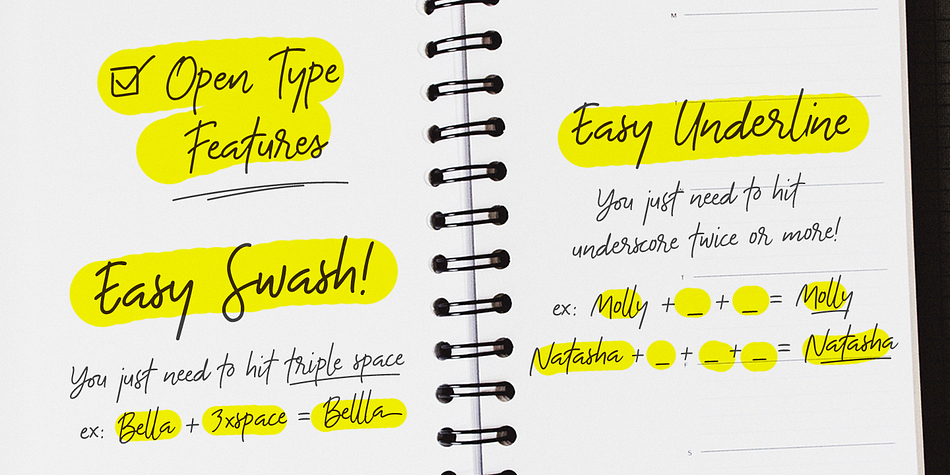 Open Type
Features
Easy Swash!
You just need to hit triple space
ex: Bella + 3xspace = Bellla
M
Easy Underline
You just need to hit
underscore twice or more!
T
ex: Molly + _ + _ = Molly
Natasha + _ + _ + _ = Natasha
S